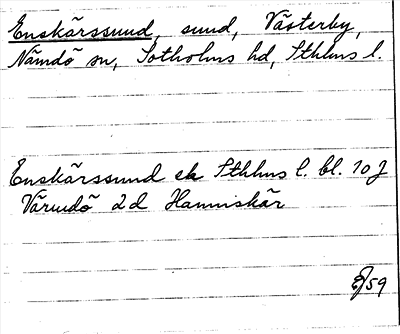 Enskärssund, sund, Västerby,
Nämdö sn, Sotholms hd, Sthlms l.
Enskärssund ek Sthlms l. bl. 10 J
Värmdö 2d Hamnskär
59